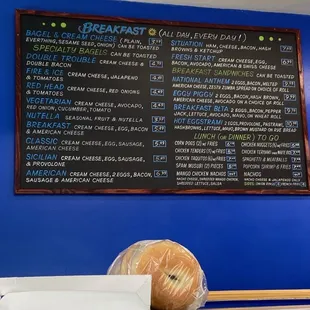 BREAKFAST (ALL DAY, EVERY DAY!)
BAGEL & CREAM CHEESE (PLAIN,
EVERYTHING, SESAME SEED, ONION) CAN BE TOASTED
SPECIALTY BAGELS CAN BE TOASTED
DOUBLE TROUBLE CREAM CHEESE &
DOUBLE BACON
FIRE & ICE CREAM CHEESE, JALAPENO
& TOMATOES
RED HEAD CREAM CHEESE, RED ONIONS
& TOMATOES
VEGETARIAN CREAM CHEESE, AVOCADO,
RED ONION, CUCUMBER, TOMATO
NUTELLA SEASONAL FRUIT & NUTELLA
BREAKFAST CREAM CHEESE, EGG, BACON
& AMERICAN CHEESE
CLASSIC CREAM CHEESE, EGG, SAUSAGE,
AMERICAN CHEESE
SICILIAN CREAM CHEESE, EGG, SAUSAGE,
& PROVOLONE
AMERICAN CREAM CHEESE, 2 EGGS, BACON,
SAUSAGE & AMERICAN CHEESE
SITUATION HAM, CHEESE, BACON, HASH
BROWNS & KETCHUP
FRESH START CREAM CHEESE, EGG,
BACON, AVOCADO, AMERICAN & SWISS CHEESE
BREAKFAST SANDWICHES CAN BE TOASTED
NATIONAL ANTHEM 2 EGGS, BACON,
AMERICAN CHEESE, ZESTY ZUMBA SPREAD ON CHOICE OF
EGGY PIGGY 2 EGGS, BACON, HASH BROWN,
AMERICAN CHEESE, AVOCADO ON A CHOICE OF
BREAKFAST BLTA 2 EGGS, BACON, PEPPER JACK
CHEESE, LETTUCE, AVOCADO, MAYO, ON WHEAT ROLL
HOT EGGSTRAMI 2 EGGS, PROVOLONE, PASTRAMI,
HASHBROWNS, LETTUCE, MAYO, MUSTARD ON RYE BREAD
LUNCH (OR DINNER) TO GO
CORN DOGS (2) W/ FRIES
CHICKEN TENDERS (3) W/ FRIES
CHICKEN TAQUITOS (5) W/ FRIES
SPAM MUSUBI (2) PIECES
MANGO CHICKEN WRAP
SHREDDED LETTUCE, SALSA
CHICKEN NUGGETS (10) W/ FRIES
CHICKEN TERIYAKI
SPAGHETTI & MEATBALLS
POPCORN SHRIMP & FRIES
NACHOS
NACHO CHEESE & JALAPENOS